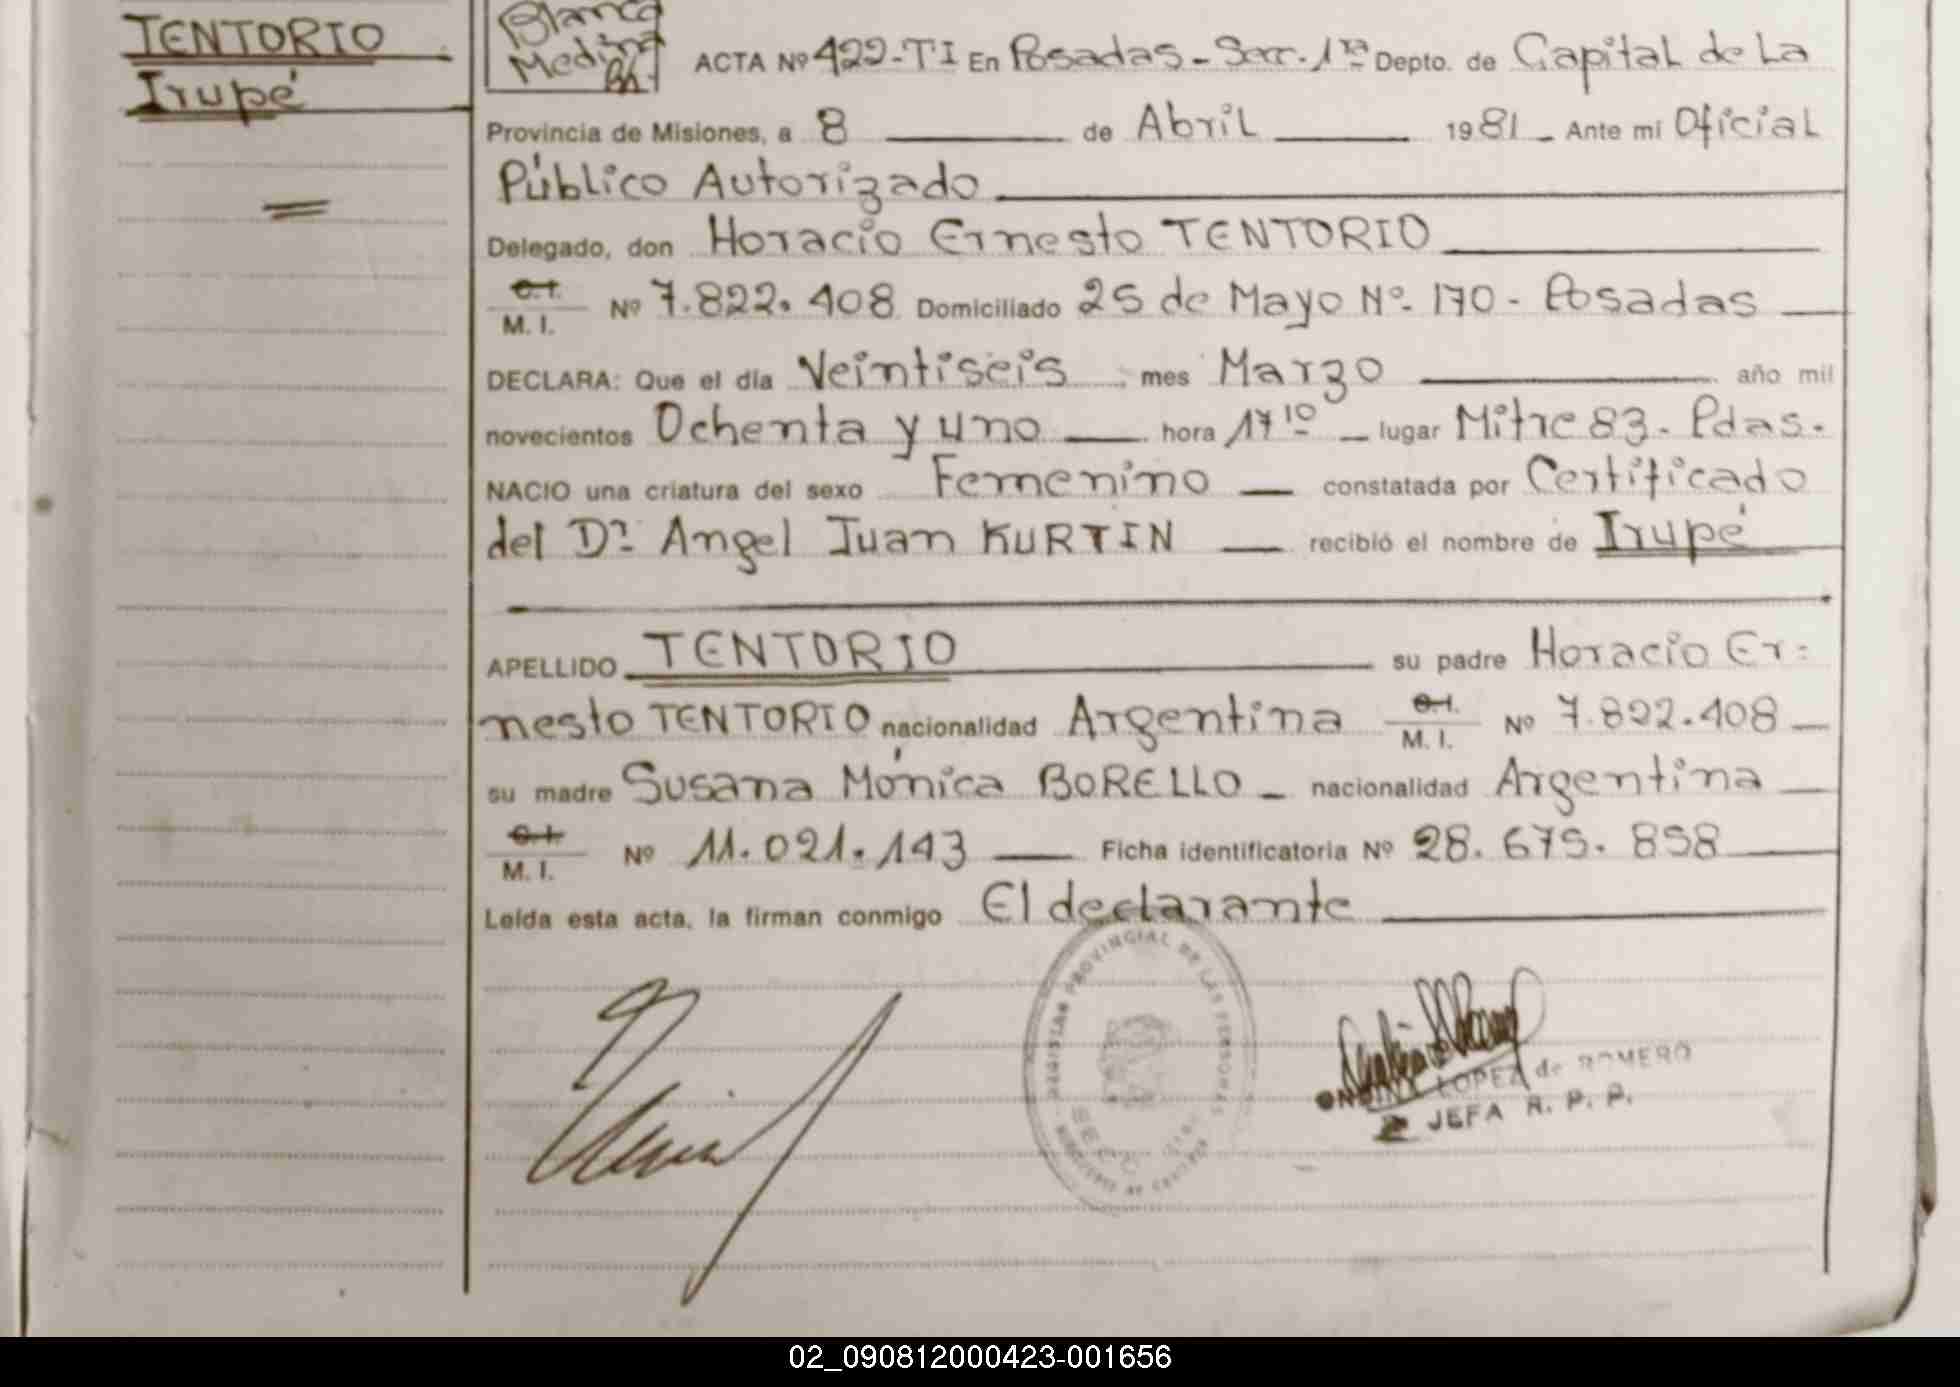 TENTORIO
Irupé
Blanca
Medina
ACTA Nº 422-TI En Posadas - Secc. 1ra Depto. de Capital de La
Provincia de Misiones, a 8 de Abril 1981 Ante mi Oficial
Público Autorizado
Delegado, don Horacio Ernesto TENTORIO
C.I.
M. I. Nº 7.822.408 Domiciliado 25 de Mayo Nº 170 - Posadas
DECLARA: Que el día Veintiseis mes Marzo año mil
novecientos Ochenta y uno hora 17 10 lugar Mitre 83 - Pdas.
NACIO una criatura del sexo Femenino constatada por Certificado
del Dr. Angel Juan KURTIN recibió el nombre de Irupé
APELLIDO TENTORIO su padre Horacio Er=
nesto TENTORIO nacionalidad Argentina C.I.
M. I. Nº 7.822.408
su madre Susana Mónica BORELLO nacionalidad Argentina
C.I.
M. I. Nº 11.021.143 Ficha identificatoria Nº 28.675.858
Leída esta acta, la firman conmigo El declarante
PROVINCIAL DE LAS PERSONAS
LOPEZ de ROMERO
JEFA R. P. P.
02_090812000423-001656